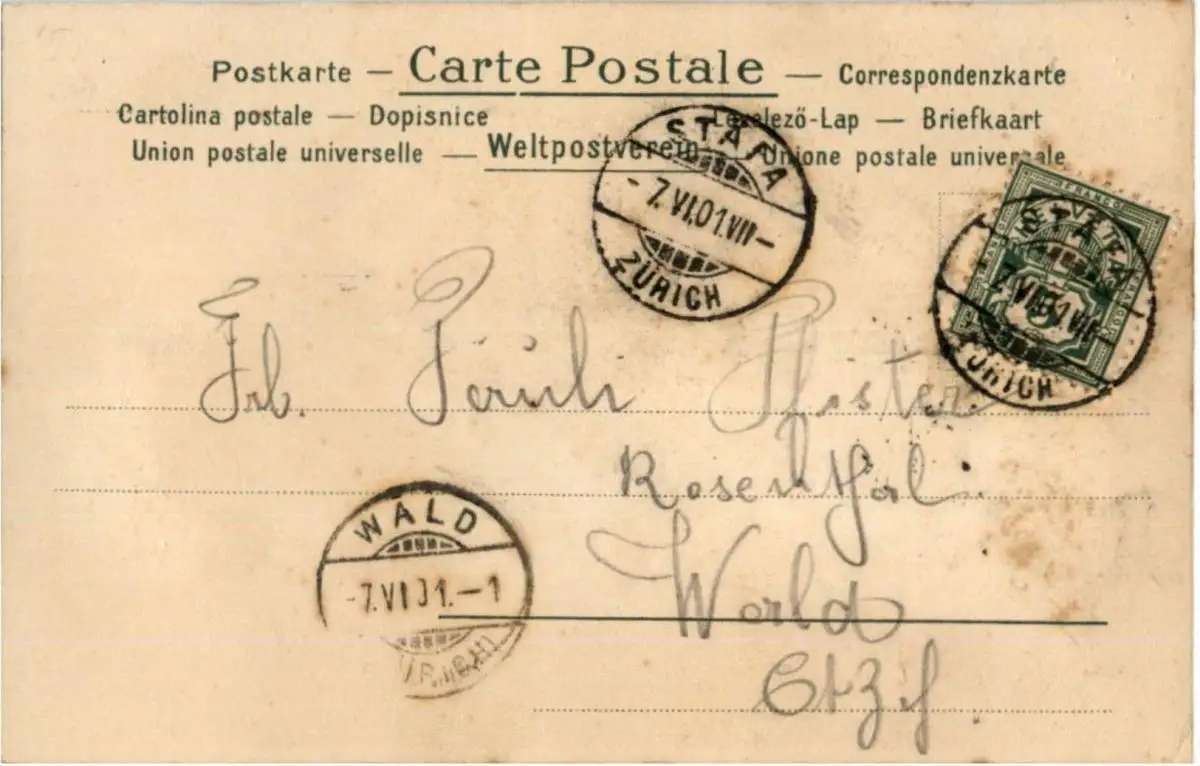 Postkarte — Carte Postale — Correspondenzkarte
Cartolina postale — Dopisnice Levelező-Lap — Briefkaart
Union postale universelle — Weltpostverein — Unione postale universale
STÄFA
-7.VI.01.VII-
ZÜRICH
FRANCO
HELVETIA
STÄFA
7.VI.01.VII
ZÜRICH
Frl. Pfister
Rosenthal.
WALD
-7.VI.01.-1
(ZÜRICH)
Wald
Ct. Zch.